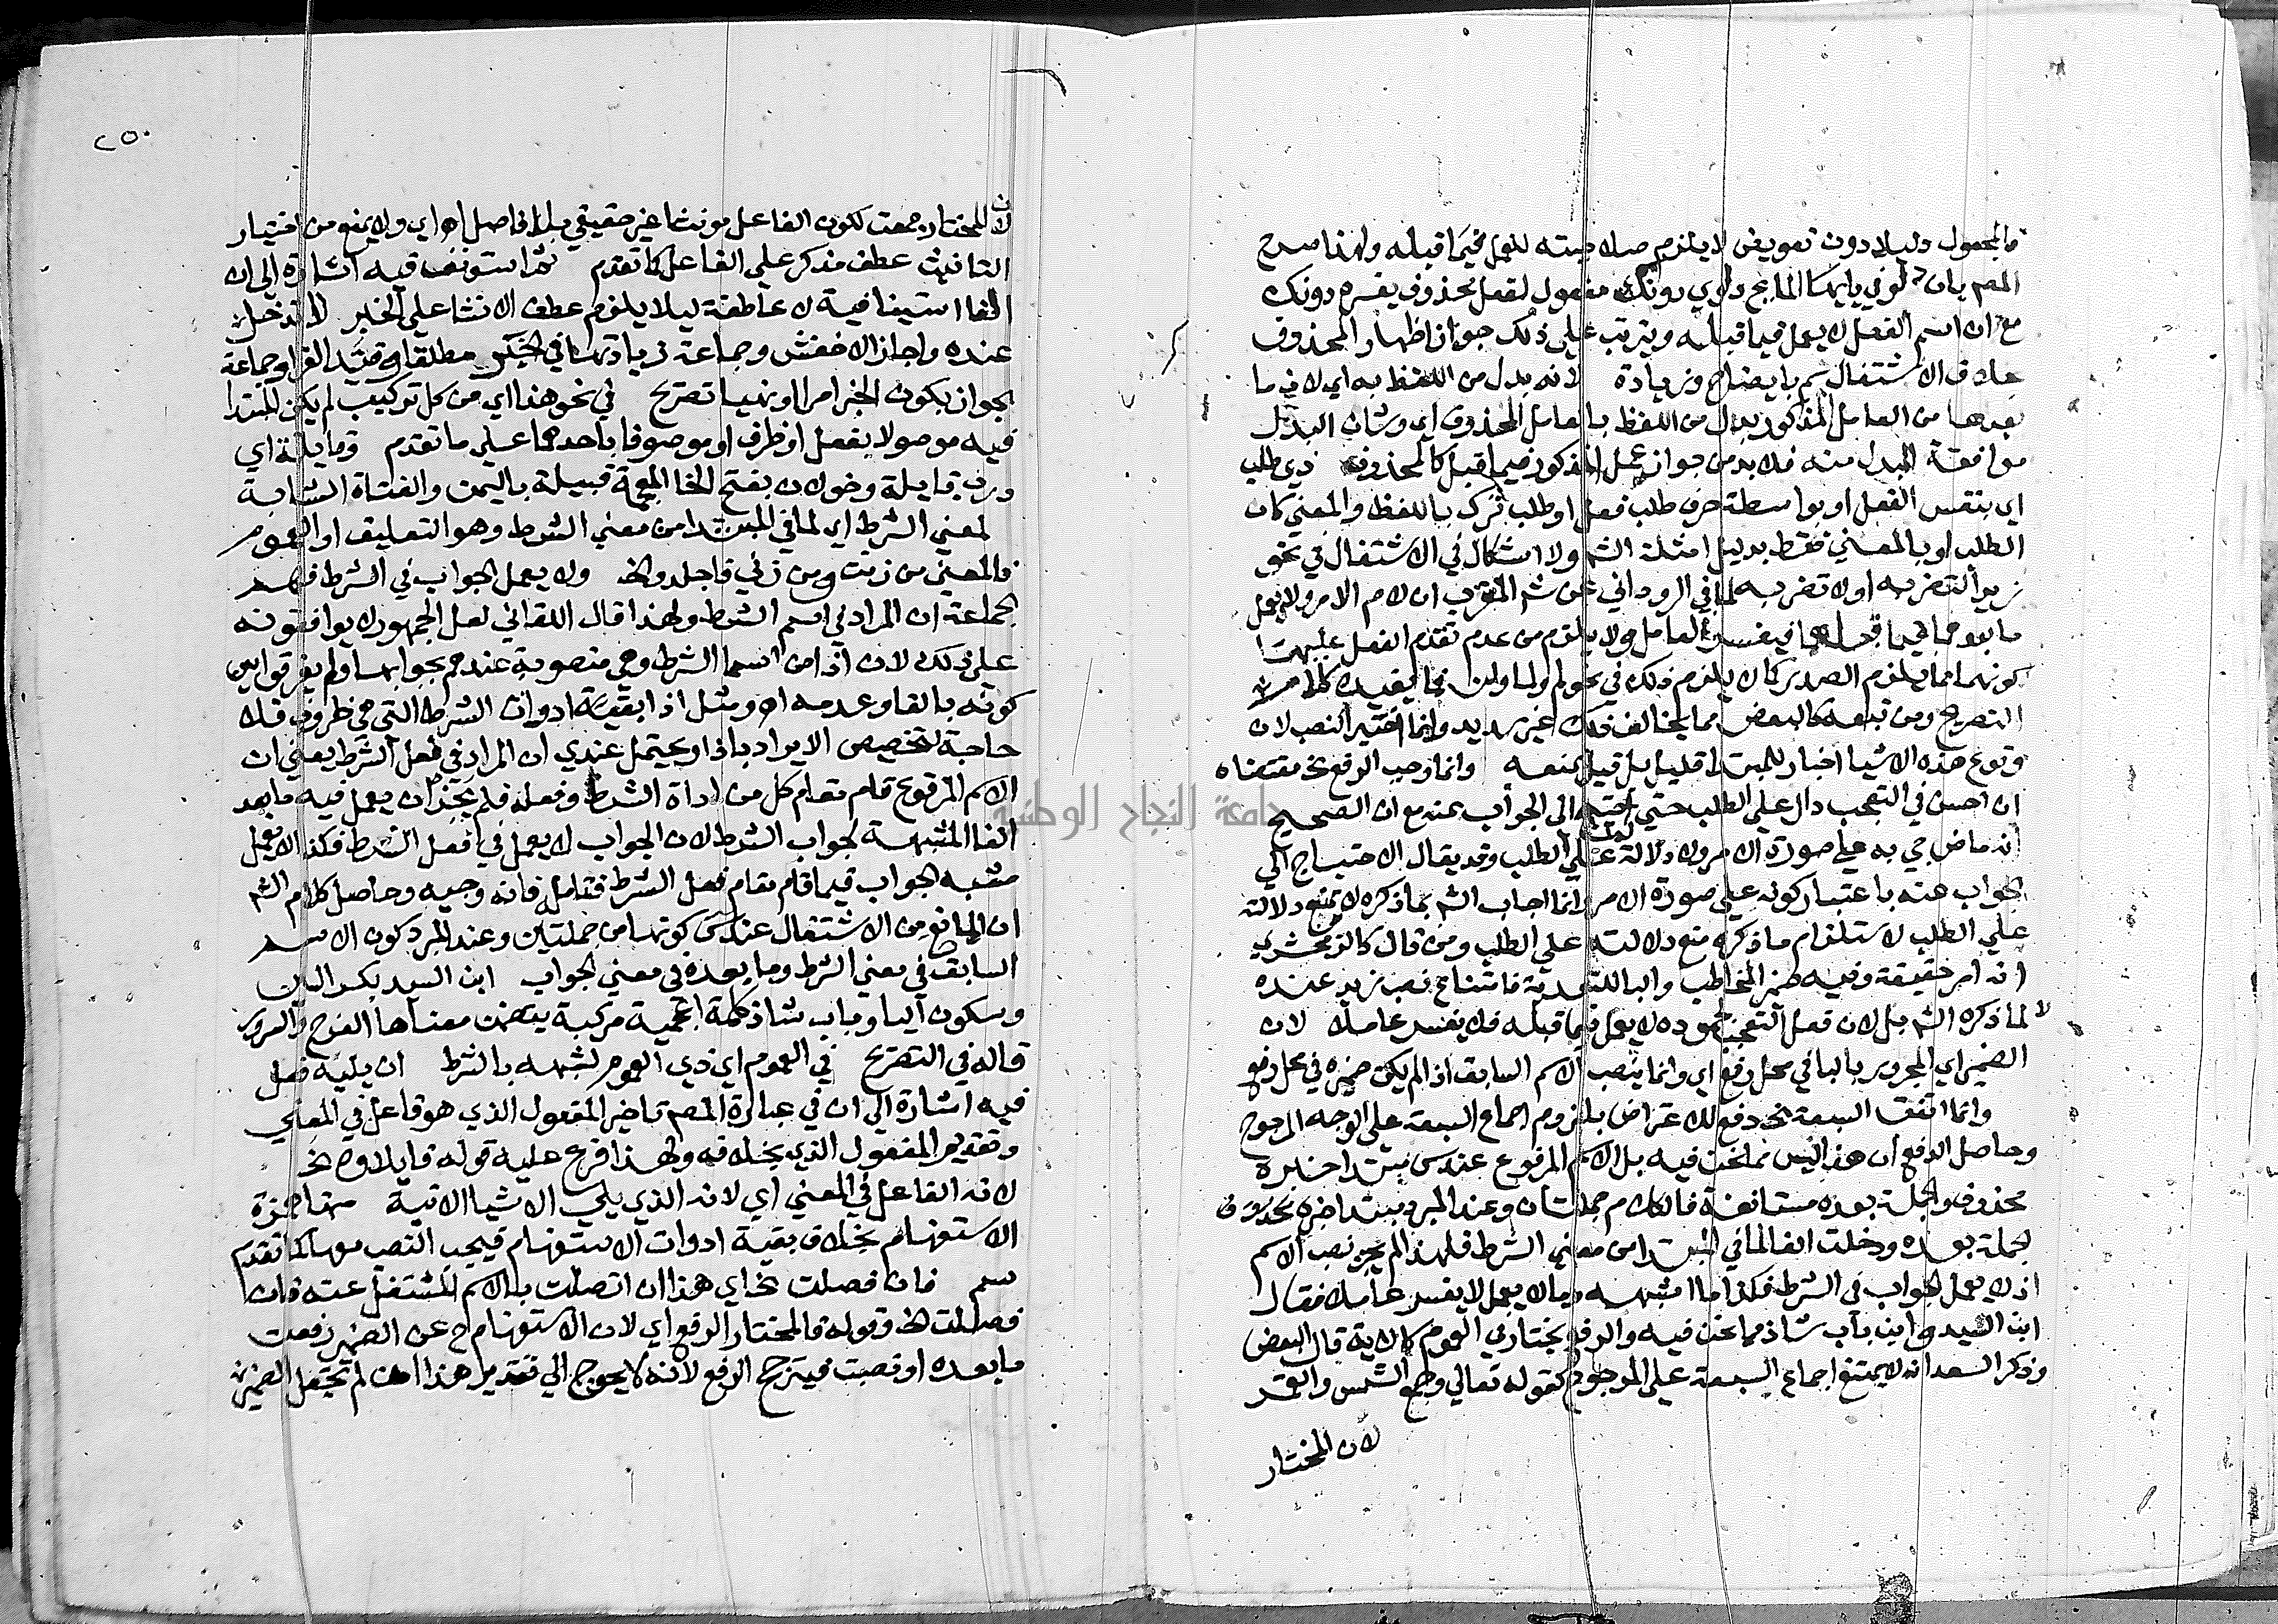 فالمجعول دليلا دون تعويض لا يلزم صلاحيته للعمل فيما قبله ولهذا صرح
المص بان دلوي في يا ايها المايح دلوي دونك مفعول لفعل محذوف يفسره دونك
مع ان اسم الفعل لا يعمل فيما قبله ويترتب علي ذلك جواز اظهار المحذوف
خلاف الاشتغال سم بايضاح وزيادة لانه بدل من اللفظ به اي لان ما
بعدها من العامل المذكور بدل من اللفظ بالعامل المحذوف اي وشان البدل
موافقة المبدل منه فلا بد من جواز عمل المذكور فيما قبل كالمحذوف ذي طلب
اي بنفس الفعل او بواسطة حرف طلب فعل او طلب ترك باللفظ والمعني كان
الطلب او بالمعني فقط بدليل امثلة الش ولا اشكال في الاشتغال في نحو
زيدا لتضربه او لا تضربه لما في الروداني عن شم المقرب ان لام الامر ولا يعمل
ما بعدهما فيما قبلهما فيفسر العامل ولا يلزم من عدم تقدم الفعل عليهما
كونهما مما يلزم الصدر كما لا يلزم ذلك في نحو لم ولما ولن فما يفيده كلام ش
التصريح ومن تبعه كالبعض مما يخالف ذلك غير سديد وانما اختير النصب لان
وقوع هذه الاشيا اخبار للمبتدا قليل بل قيل بمنعه وانما وجب الرفع نحو مقتضاه
ان احسن في التعجب دال علي الطلب حتي احتيج الي الجواب عنه مع ان الصحيح
انه ماض جي به علي صورة الامر ولا دلالة له علي الطلب وقد يقال الاحتياج الي
الجواب عنه باعتبار كونه علي صورة الامر وانما اجاب الش بما ذكره لا بمنع دلالته
علي الطلب لاستلزام ما ذكره منع دلالته علي الطلب ومن قال كالزمخشري
انه امر حقيقة وفيه ضمير المخاطب والبا للتعدية فامتناع نصب زيد عنده
لا لما ذكره الش بل لان فعل التعجب لجموده لا يعمل فيما قبله فلا يفسر عاملا لان
الضمير اي المجرور بالبا في محل رفع اي وانما ينصب الاسم السابق اذا لم يكن ضميره في محل رفع
وانما اتفق السبعة نحو دفع للاعتراض بلزوم اجماع السبعة علي الوجه المرجوح
وحاصل الدفع ان هذا ليس مما نحن فيه بل الاسم المرفوع عند س مبتدا خبره
محذوف والجملة بعده مستانفة فالكلام جملتان وعند المبرد مبتدا خبره
الجملة بعده ودخلت الفا لما في المبتدا من معني الشرط فلهذا لم يجز نصب الاسم
اذ لا يعمل الجواب في الشرط فكذا ما اشبهه وما لا يعمل لا يفسر عاملا فقال
ابن السيد وابن باب شاذ مما نحن فيه والرفع يختار في العموم كالاية قال البعض
وذكر السعد انه لا يمتنع اجماع السبعة علي المرجوح كقوله تعالي وجمع الشمس والقمر
لان المختار
٢٥٠
لان المختار جمعت لكون الفاعل مونثا غير حقيقي بلا فاصل اه اي ولا يمنع من اختيار
التانيث عطف مذكر علي الفاعل كما تقدم ثم استونف فيه اشارة الي ان
الفا استينافية لا عاطفة ليلا يلزم عطف الانشا علي الخبر لا تدخل
عنده واجاز الاخفش وجماعة زيادتها في الخبر مطلقا وقيد الفرا وجماعة
بجواز بكون الخبر امرا او نهيا تصريح في نحو هذا اي من كل تركيب لم يكن المبتدا
فيه موصولا بفعل او ظرف او موصوفا باحدهما علي ما تقدم وقايلة اي
ورب قايلة وخولان بفتح الخا المعجمة قبيلة باليمن والفتاة الشابة
لمعني الشرط اي لما في المبتدا من معني الشرط وهو التعليق او العموم
فالمعني من زنت ومن زني فاجلدوا الخ ولا يعمل الجواب في الشرط فهم
الجماعة ان المراد في اسم الشرط ولهذا قال اللقاني لعل الجمهور لا يوافقونه
علي ذلك لان اذا من اسما الشرط وهي منصوبة عندهم بجوابها ولم يفرقوا بين
كونه بالفا وعدمه اه ومثل اذا بقية ادوات الشرط التي هي ظروف فلا
حاجة لتخصيص الايراد باذا ويحتمل عندي ان المراد في فعل الشرط يعني ان
الاسم المرفوع قام مقام كل من اداة الشرط وفعله فلم يجز ان يعمل فيه ما بعد
الفا المشبهة لجواب الشرط لان الجواب لا يعمل في فعل الشرط فكذا لا يعمل
مشبه الجواب فيما قام مقام فعل الشرط فتامل فانه وجيه وحاصل كلام الش
ان المانع من الاشتغال عند س كونهما من جملتين وعند المبرد كون الاسم
السابق في معني الشرط وما بعده في معني الجواب ابن السيد بكسر السين
وسكون اليا وباب شاذ كلمة اعجمية مركبة يتضمن معناها الفرح والسرور
قاله في التصريح في العموم اي ذي العموم لشبهه بالشرط ان يليه فعل
فيه اشارة الي ان في عبارة المص تاخير المفعول الذي هو فاعل في المعني
وتقديم المفعول الذي بخلافه ولهذا فرع عليه قوله فايلاوه نحو
لانه الفاعل في المعني اي لانه الذي يلي الاشيا الاتية منها همزة
الاستفهام بخلاف بقية ادوات الاستفهام فيجب النصب معها كما تقدم
سم فان فصلت نحو اي هذا ان اتصلت بالاسم المشتغل عنه فان
فصلت الخ وقوله فالمختار الرفع اي لان الاستفهام ح عن الضمير رفعت
ما بعده او نصبت فيترجح الرفع لانه لا يحوج الي تقدير هذا ان لم تجعل الضمير